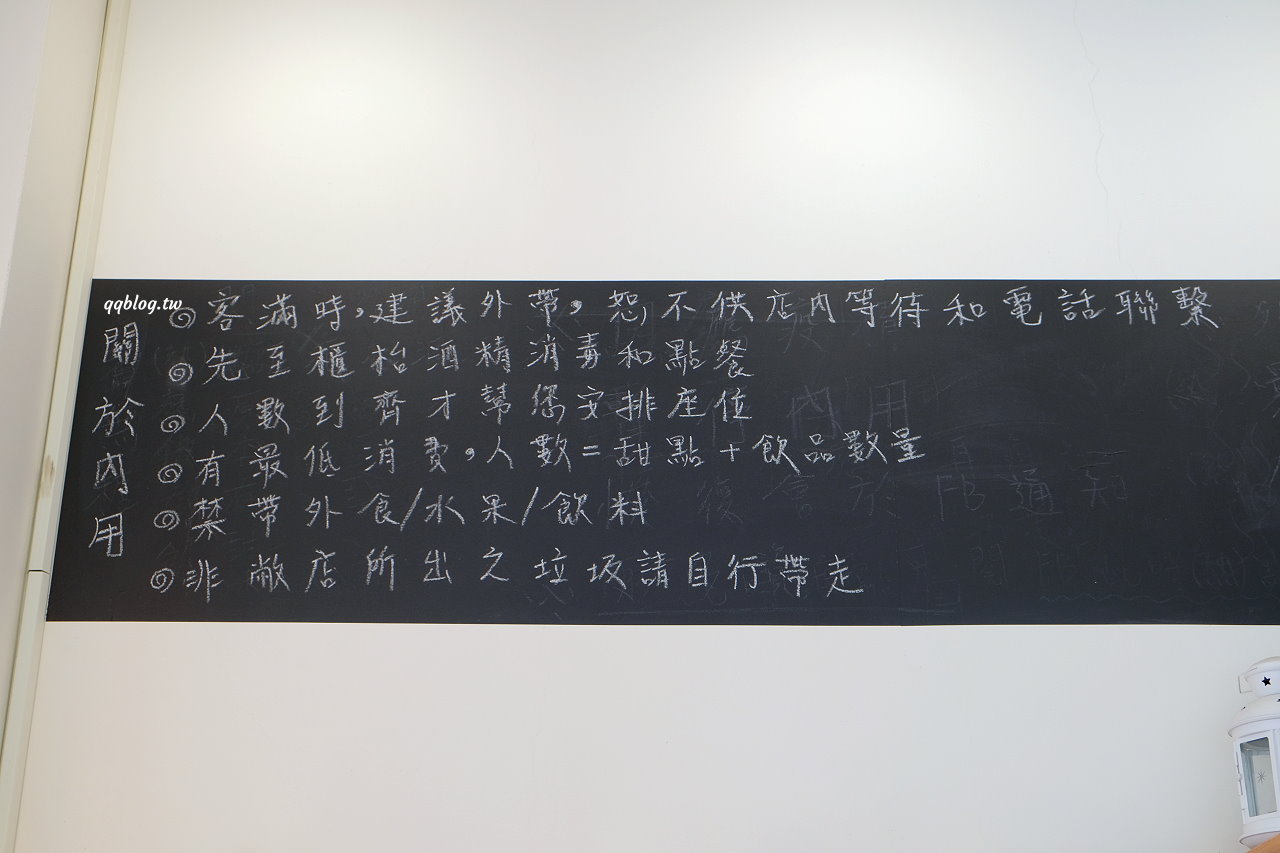 qqblog.tw
關於內用
客滿時,建議外帶,恕不供店內等待和電話聯繫
先至櫃枱酒精消毒和點餐
人數到齊才幫您安排座位
有最低消費,人數=甜點+飲品數量
禁帶外食/水果/飲料
非敝店所出之垃圾請自行帶走